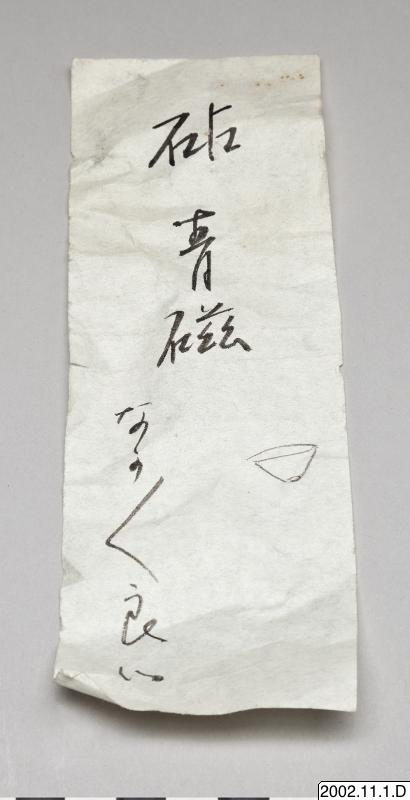 砧青磁
なかく良い
2002.11.1.D